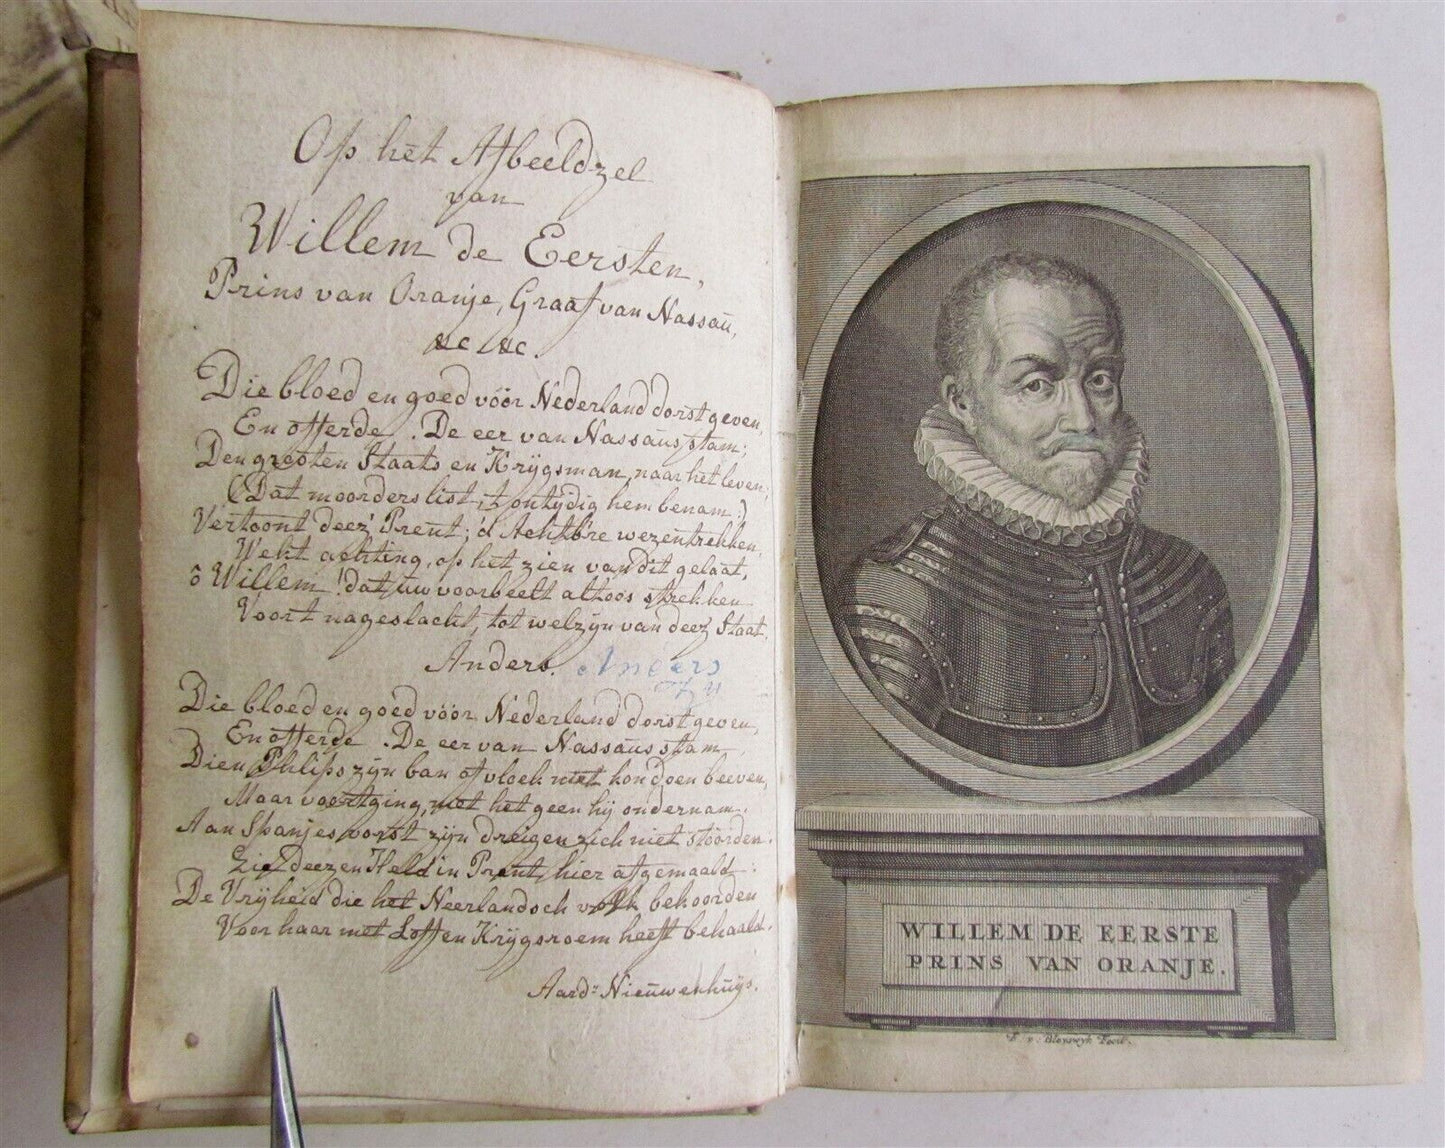 Op het Afbeeldzel
van
Willem de Eersten,
Prins van Oranje, Graaf van Nassaŭ,
&c &c.
Die bloed en goed vóór Nederland dorst geven,
En offerde. De eer van Nassaŭs stam;
Den grooten Staats en Krÿgsman, naar het leven,
(Dat moorders list, 't ontÿdig hem benam:)
Vertoont deez' Prent; 'd Achtb're wezentrekken,
Wekt achting, op het zien van dit gelaat,
ô Willem! dat ŭw voorbeelt altoos strekken
Voor't nageslacht, tot welzÿn van deez' Staat.
Anders. Anders
Die bloed en goed vóór Nederland dorst geven,
En offerde. De eer van Nassaŭs stam,
Dien Phlips zÿn ban of vloek niet kon doen beeven,
Maar voortging, met het geen hÿ ondernam.
Aan Spanjes vorst zÿn dreigen zich niet stoorden.
Ziet deezen Held in Prent, hier afgemaald:
De Vrÿheid die het Neerlandsch volk behoorden
Voor haar met Loff en Krÿgsroem heeft behaald.
Aard: Nieŭwenhŭÿs.
WILLEM DE EERSTE
PRINS VAN ORANJE.
F. v. Bleyswyk Fecit.